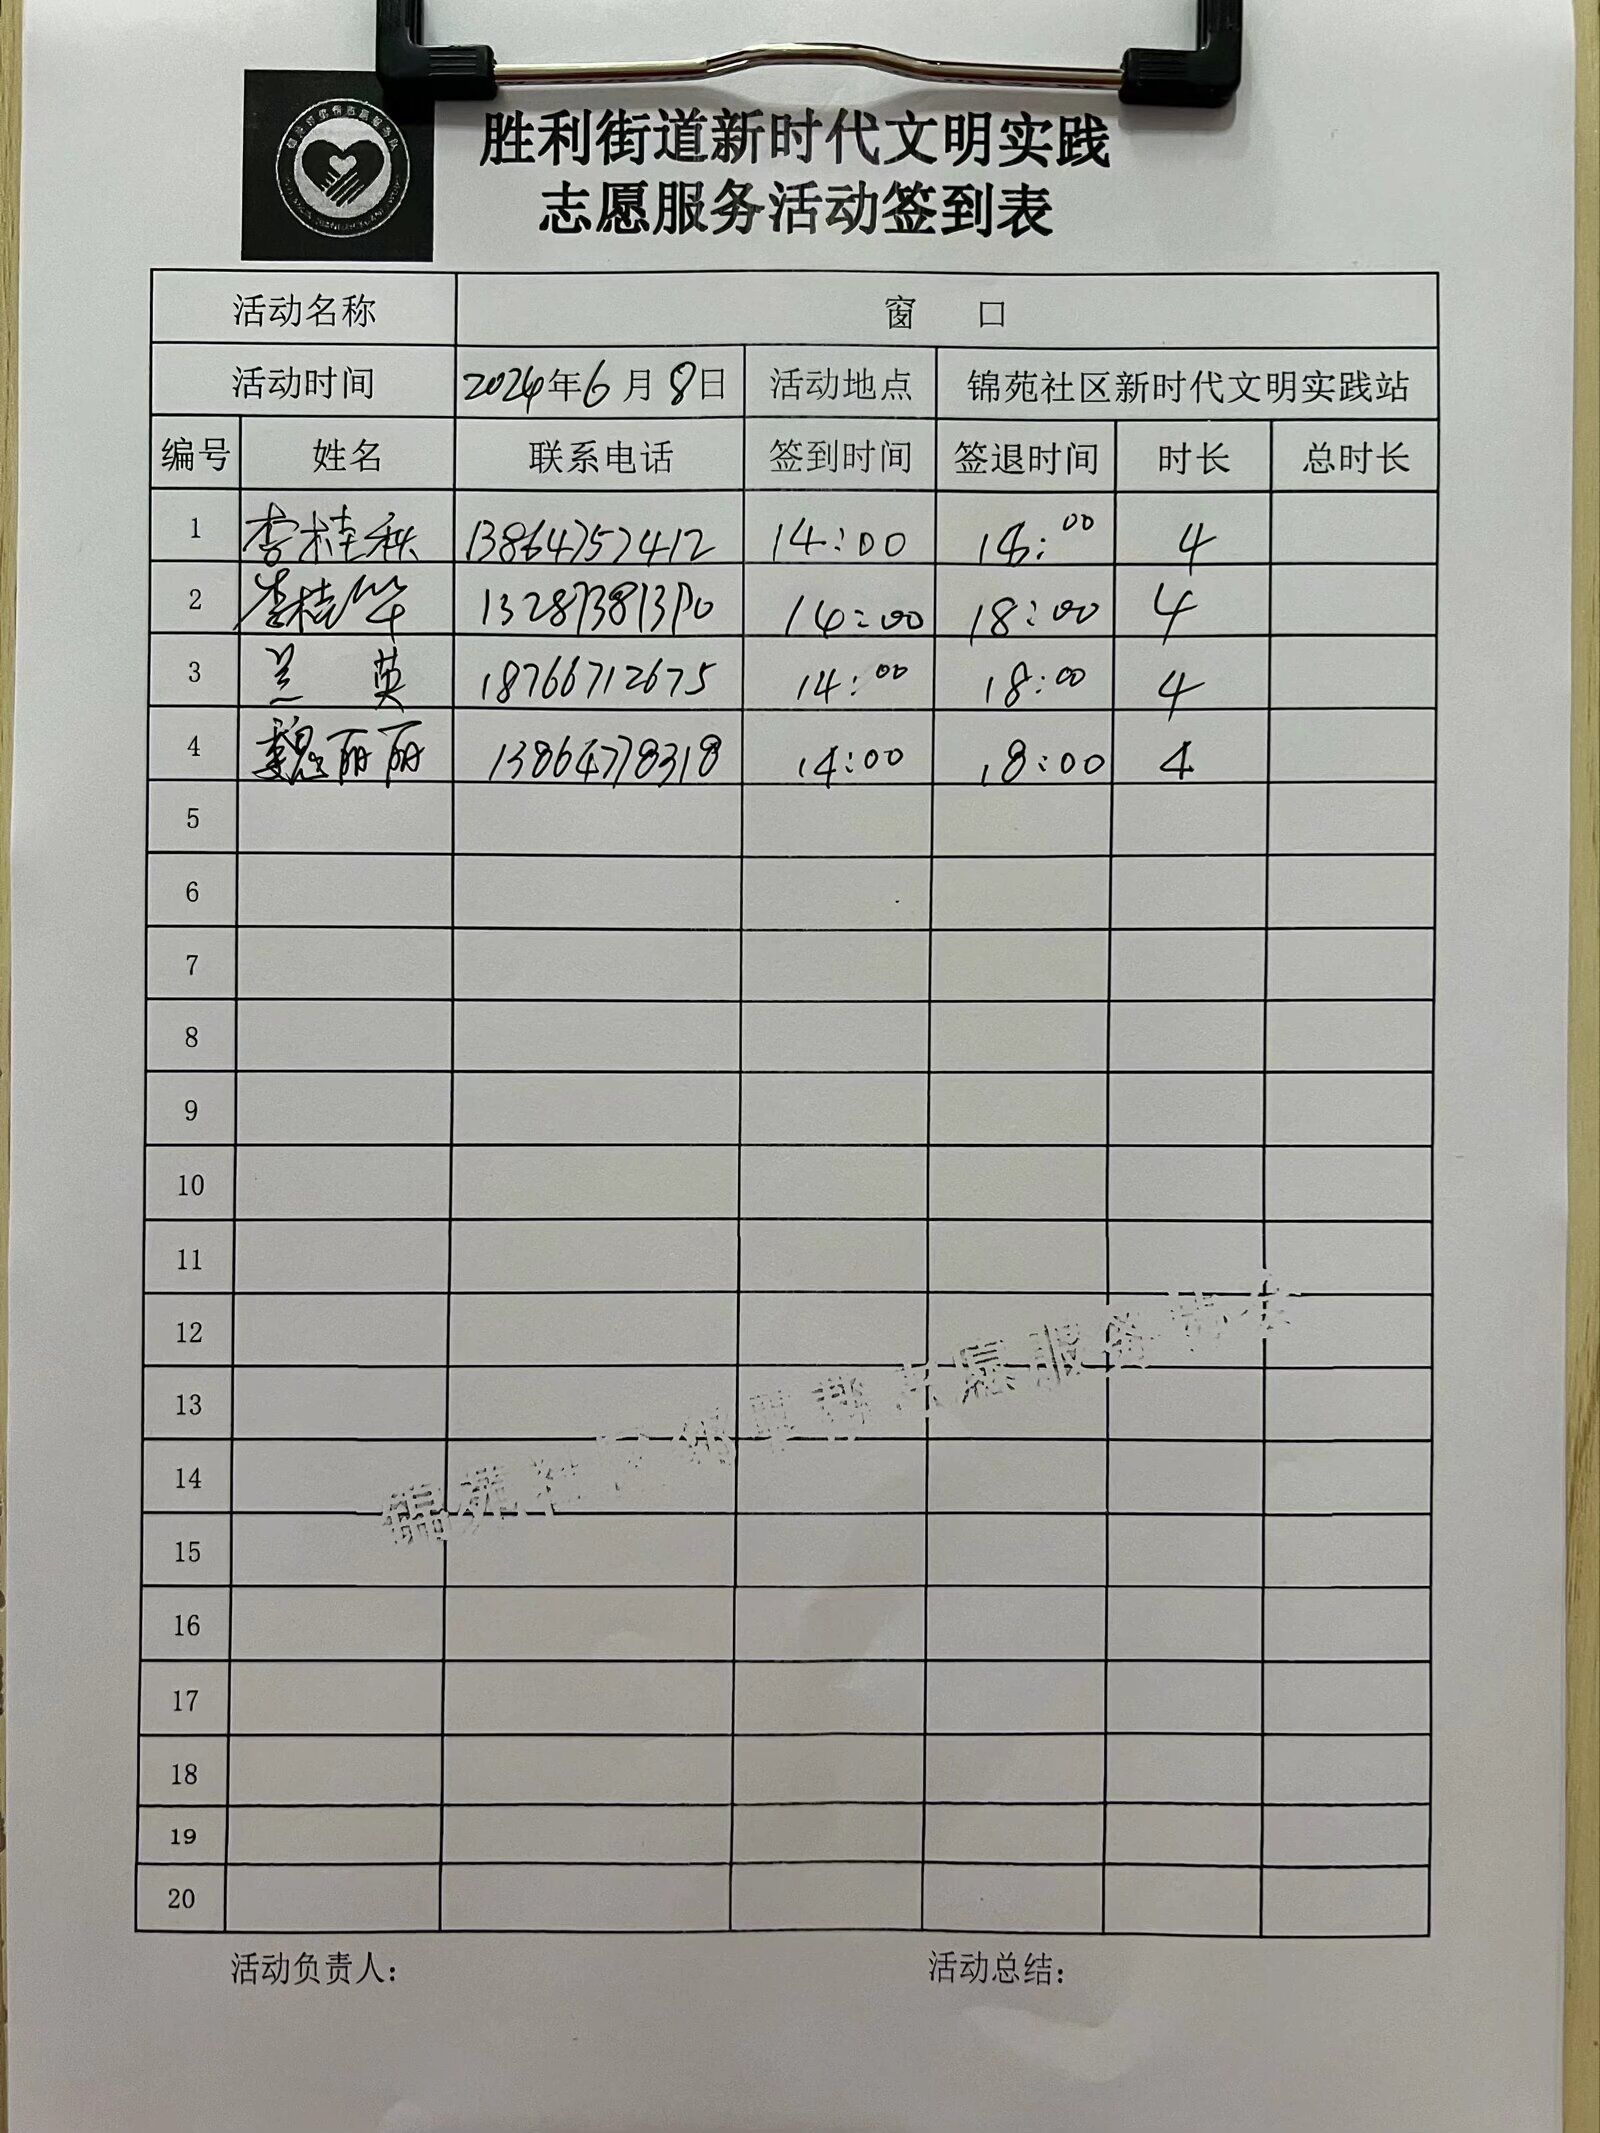 胜利街道新时代文明实践
志愿服务活动签到表
活动名称 窗 口
活动时间 2024年6月8日 活动地点 锦苑社区新时代文明实践站
编号 姓名 联系电话 签到时间 签退时间 时长 总时长
1 李桂秋 13864757412 14:00 18:00 4
2 李桂华 14:00 18:00 4
3 兰英 18766712675 14:00 18:00 4
4 魏丽丽 13864778318 14:00 18:00 4
5
6
7
8
9
10
11
12
13
14
15
16
17
18
19
20
活动负责人: 活动总结: